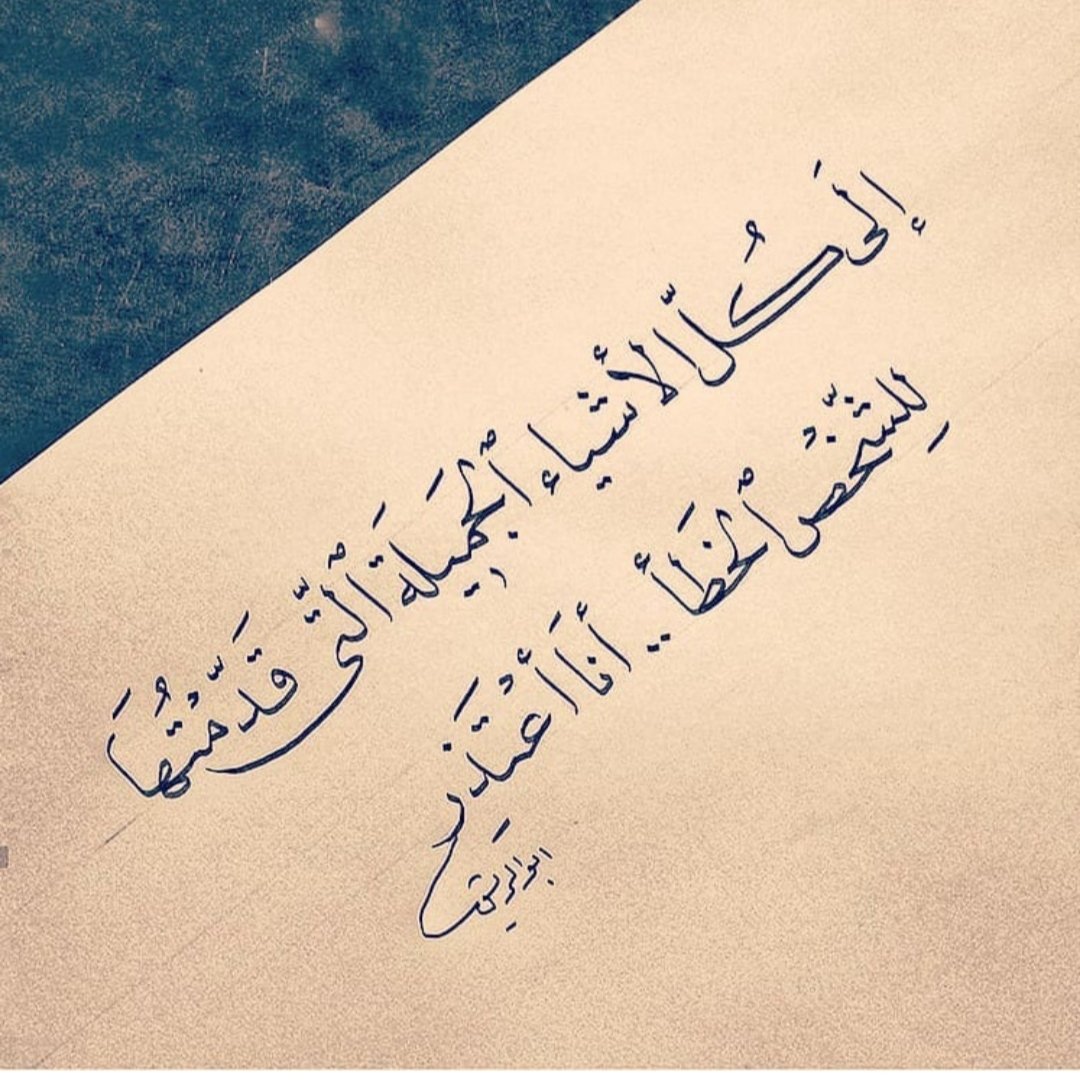 إلَى كُلّ الأشياء ٱلجَميلَة ٱلتّي قَدّمْتُهَا
لِلشّخْص ٱلخَطَأ .. أنَا أعْتَذر